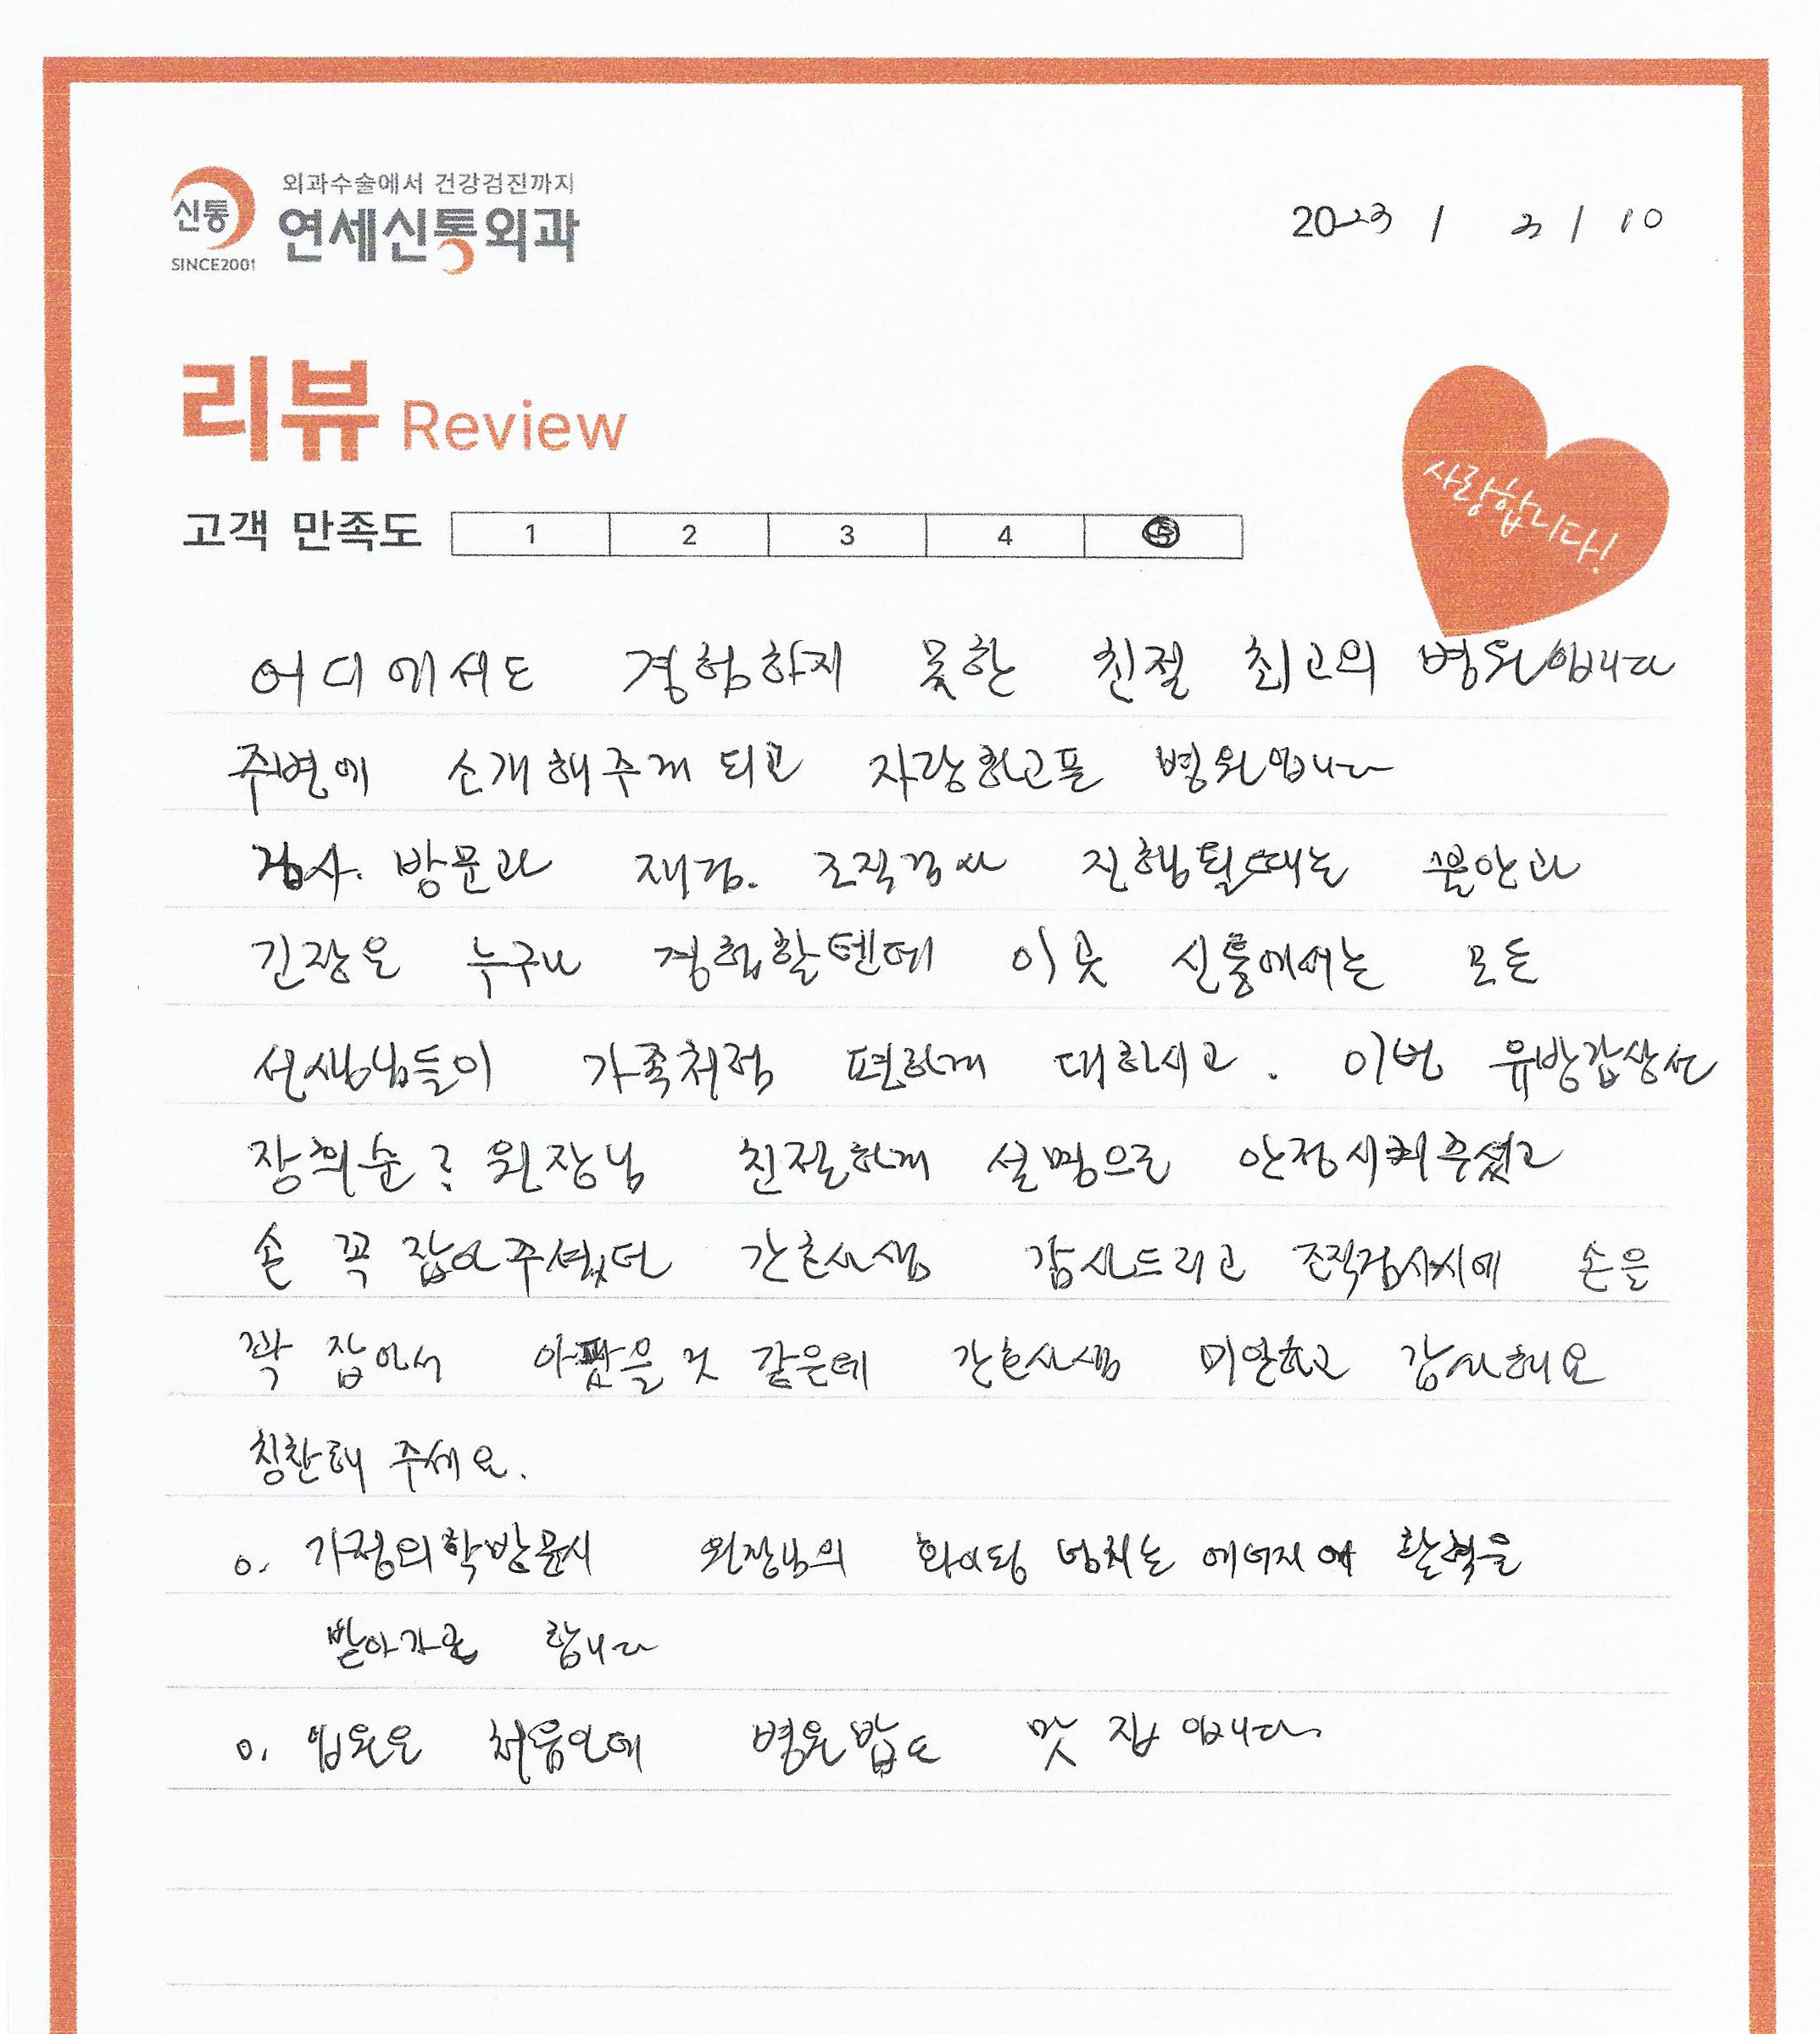 신통
SINCE2001
외과수술에서 건강검진까지
연세신통외과
2023 / 3 / 10
리뷰 Review
사랑합니다!
고객 만족도 1 2 3 4 5
어디에서도 경험하지 못한 친절 최고의 병원입니다
주변에 소개해주게 되고 자랑하고픈 병원입니다
검사. 방문과 재검. 조직검사 진행될때는 불안과
긴장은 누구나 경험할텐데 이곳 신통에서는 모든
선생님들이 가족처럼 편하게 대하시고. 이번 유방갑상선
장희순? 원장님 친절하게 설명으로 안정시켜주셨고
손 꼭 잡아주셨던 간호사샘 감사드리고 조직검사시에 손을
꽉 잡아서 아팠을 것 같은데 간호사샘 미안하고 감사해요
칭찬해 주세요.
o. 가정의학방문시 원장님의 화이팅 넘치는 에너지에 활력을
받아가곤 합니다
o. 입원은 처음인데 병원밥도 맛집입니다.